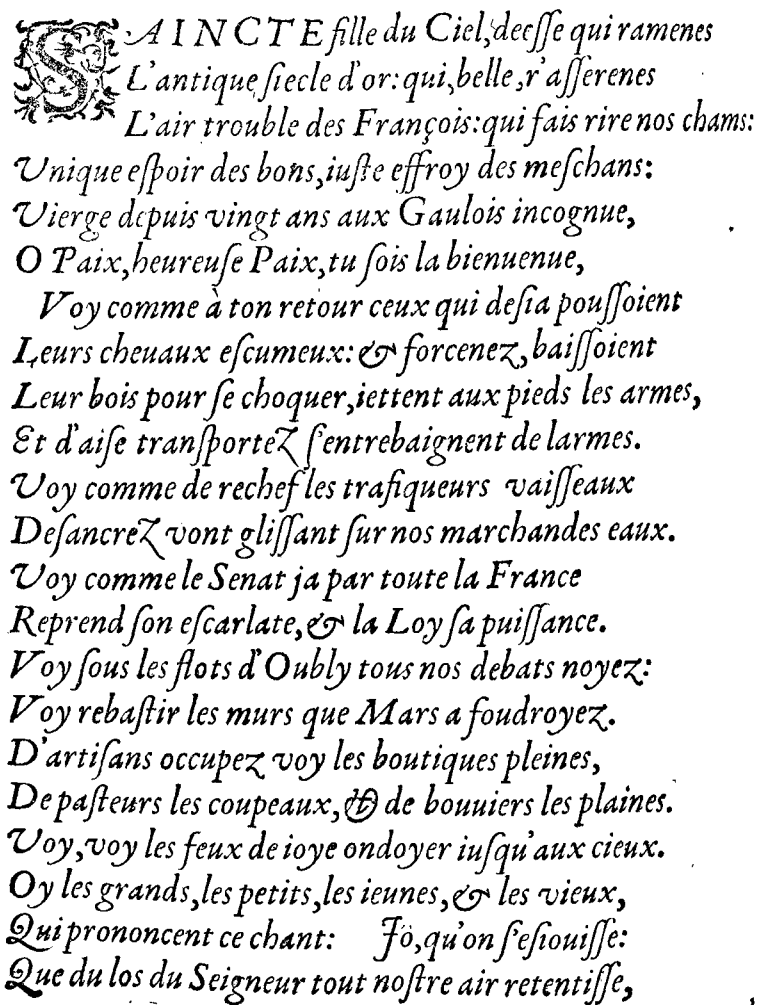 SAINCTE fille du Ciel, deesse qui ramenes
L'antique ſiecle d'or: qui, belle, r'aſſerenes
L'air trouble des François: qui fais rire nos chams:
Vnique eſpoir des bons, iuſte effroy des meſchans:
Vierge depuis vingt ans aux Gaulois incognue,
O Paix, heureuſe Paix, tu ſois la bienuenue,
Voy comme à ton retour ceux qui deſia pouſſoient
Leurs cheuaux eſcumeux: & forcenez, baiſſoient
Leur bois pour ſe choquer, iettent aux pieds les armes,
Et d'aiſe tranſportez ſ'entrebaignent de larmes.
Voy comme de rechef les trafiqueurs vaiſſeaux
Deſancrez vont gliſſant ſur nos marchandes eaux.
Voy comme le Senat ja par toute la France
Reprend ſon eſcarlate, & la Loy ſa puiſſance.
Voy ſous les flots d'Oubly tous nos debats noyez:
Voy rebaſtir les murs que Mars a foudroyez.
D'artiſans occupez voy les boutiques pleines,
De paſteurs les coupeaux, & de bouuiers les plaines.
Voy, voy les feux de ioye ondoyer iuſqu'aux cieux.
Oy les grands, les petits, les ieunes, & les vieux,
Qui prononcent ce chant: Jö, qu'on ſ'eſiouiſſe:
Que du los du Seigneur tout noſtre air retentiſſe,